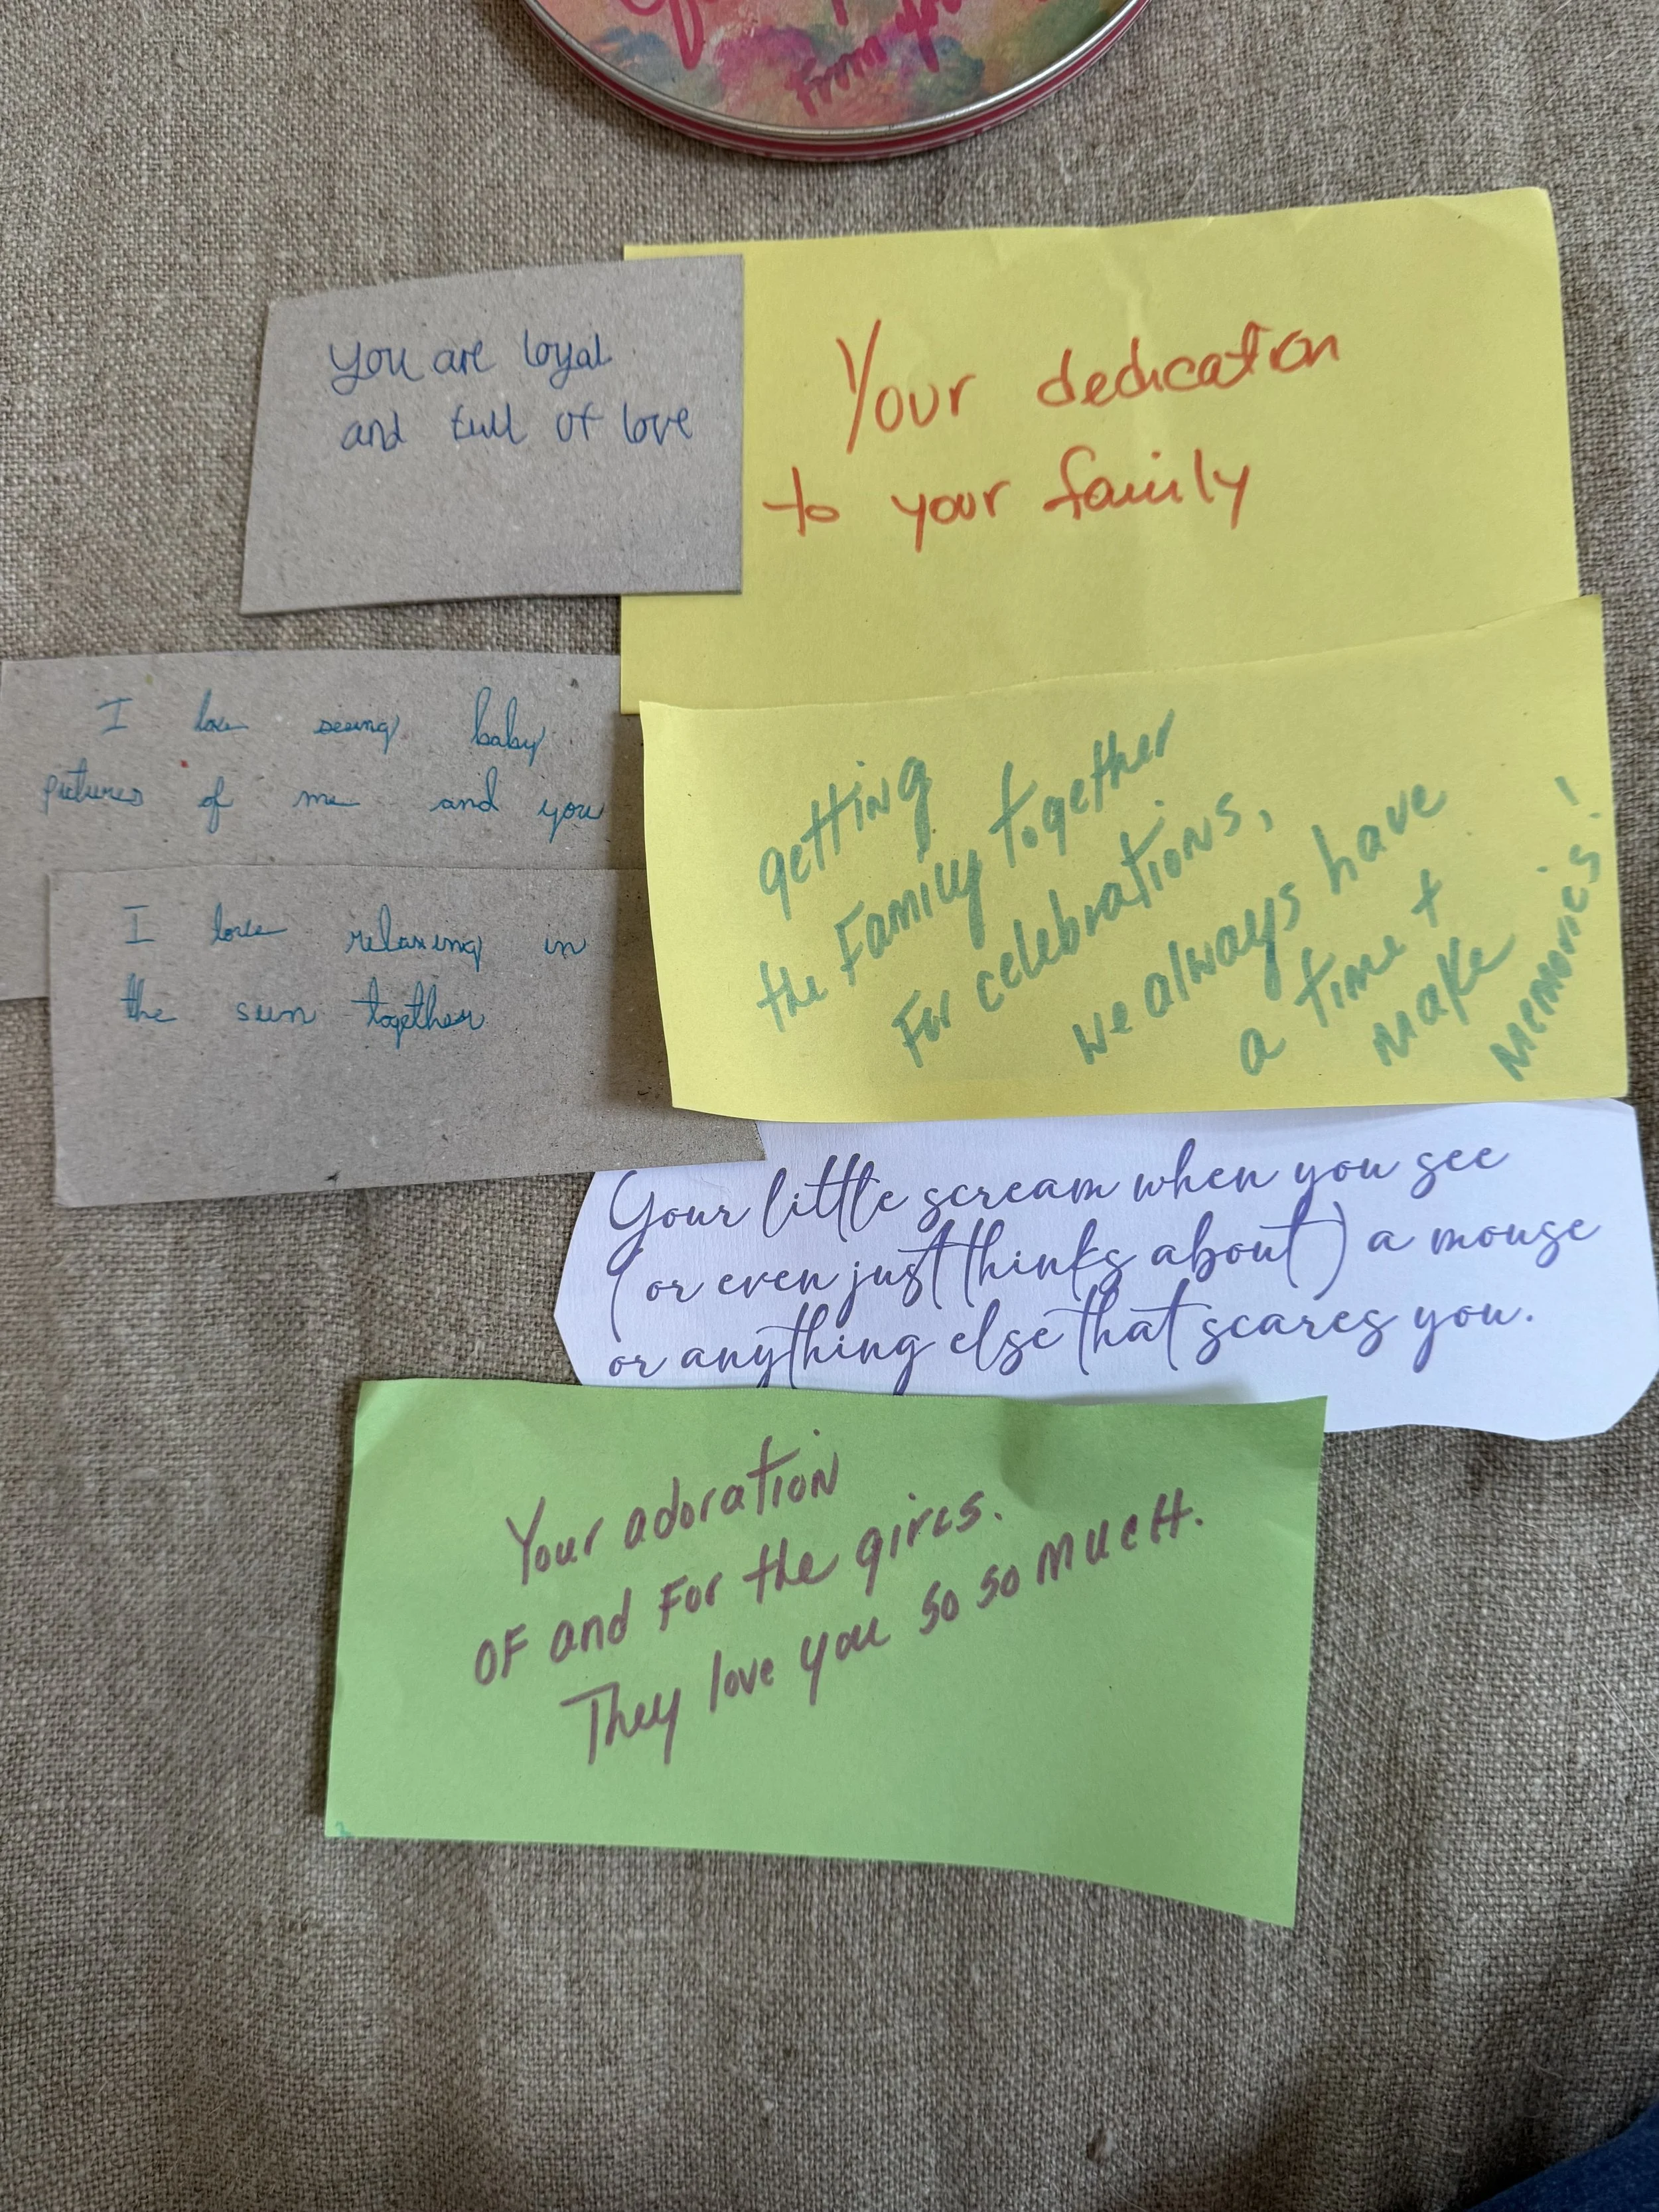 From you
You are loyal
and full of love
Your dedication
to your family
I love seeing baby
pictures of me and you
I love relaxing in
the sun together
getting
the Family together
For celebrations,
we always have
a time +
make
memories!
Your little scream when you see
(or even just thinks about) a mouse
or anything else that scares you.
Your adoration
OF and For the girls.
They love you so so much.